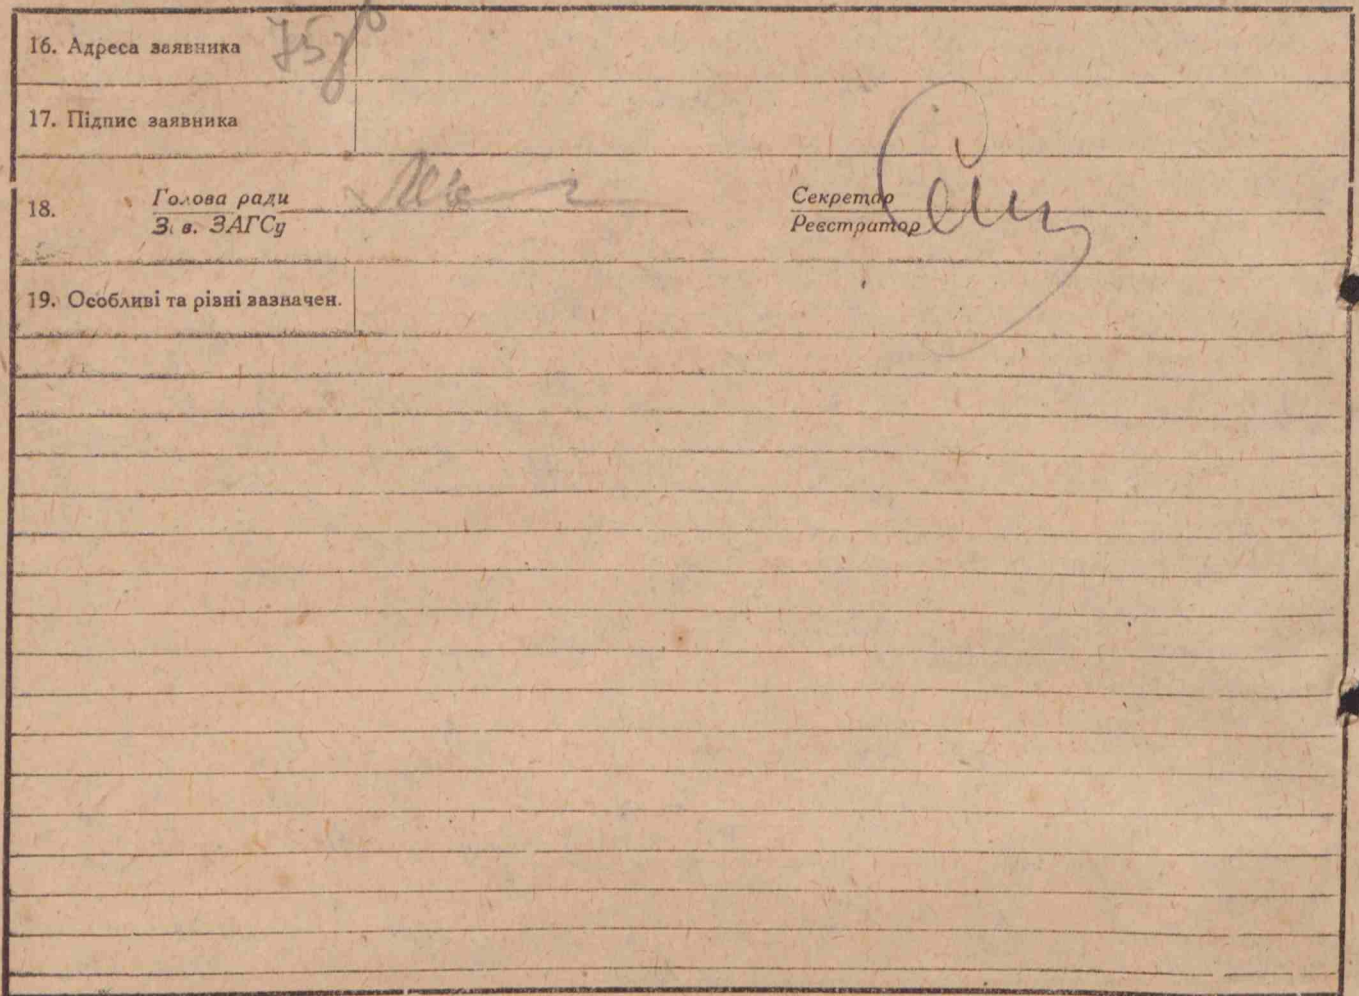 16. Адреса заявника
17. Підпис заявника
18. Голова ради
З. в. ЗАГСу
Секретар
Реєстратор
19. Особливі та різні зазначен.